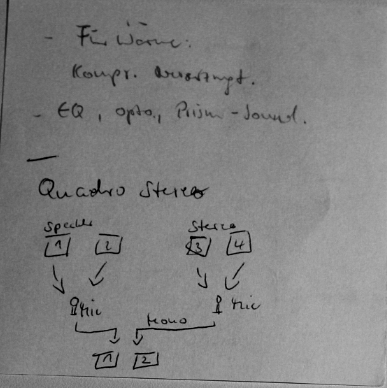 - Für Wärme:
Kompr.
- EQ, opto., Prism-Sound.
Quadro Stereo
Speaker Stereo
1 2 3 4
Mic Mic
Mono
1 2